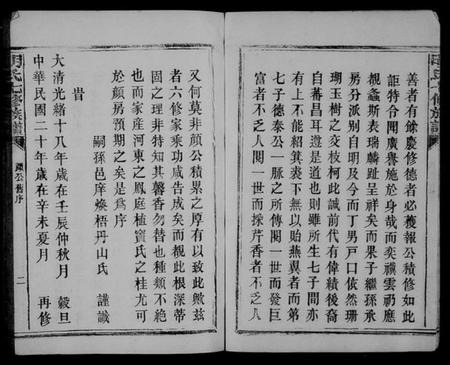 善者有餘慶修德者必獲報公積修如此
詎特令聞廣譽施於身哉而奕禩雲礽應
覩螽斯衣瑞麟趾呈祥矣而果子繼孫承
房分派别自明及今而丁男戶口依然珊
瑚玉樹之交枝柯此誠前代有偉績後裔
自蕃昌耳遵是道也則雖所生七子間亦
有不能紹箕裘下無以貽燕翼者而第
七子德泰公一脈之所傳閱一世而發巨
富者不乏人閱一世而採芹香者不乏人
又何莫非顏公積累之厚有以致此歟茲
者六修家乘功成告成矣而覩此根深蒂
固之理非特知其馨香勿替也種類不絶
也而家産河東之鳳庭植竇氏之桂尤可
於顏房預期之矣是爲序
嗣孫邑庠煥梧丹山氏 謹識
旹
大清光緒十八年歲在壬辰仲秋月 穀旦
中華民國二十年歲在辛未夏月 再修
七修族譜
公舊序
二